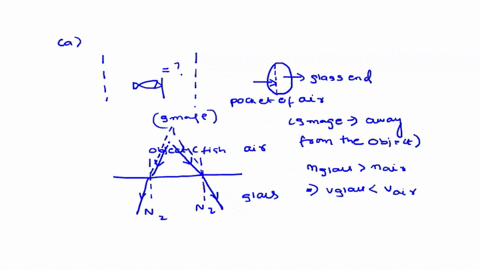 (a)
= ?
→ glass end
pocket of air
(Image)
(Image → away
from the object)
object (fish air
nglass > nair
glass
⇒ vglass < vair
N2
N2